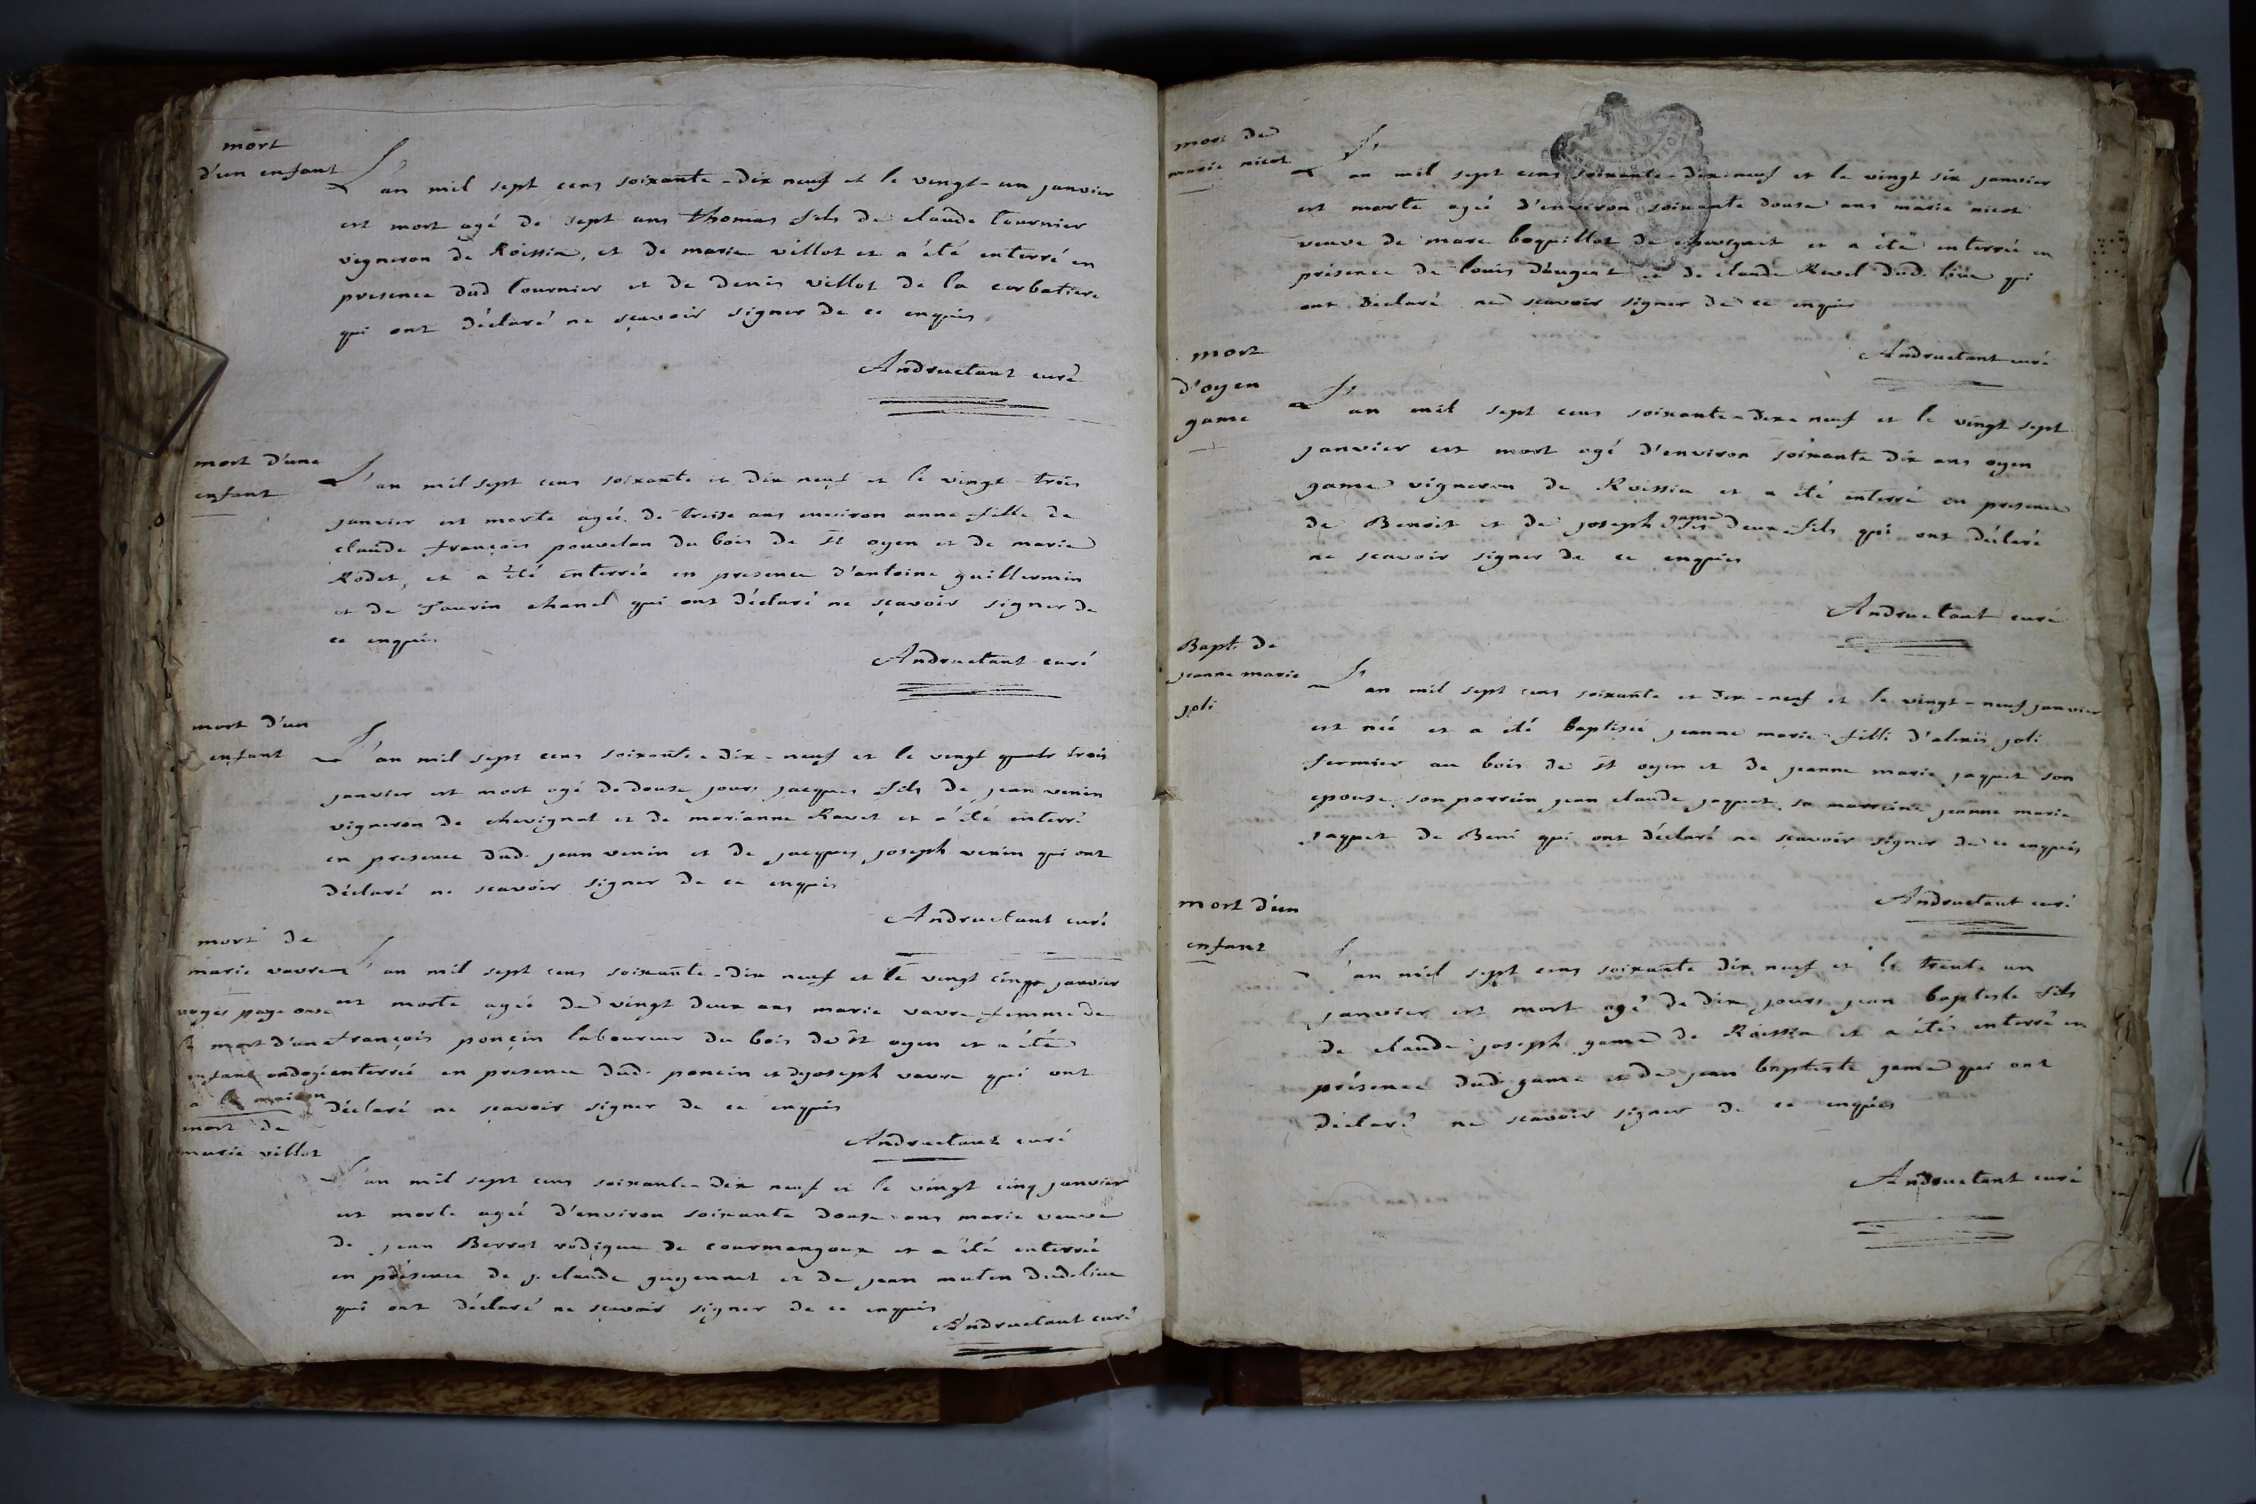 mort
d'un enfant
L'an mil sept cens soixante-dix neuf et le vingt-un janvier
est mort agé de sept ans thomas fils de claude tournier
vigneron de Roissia, et de marie villot et a été enterré en
presence dud tournier et de denis villot de la corbatiere
qui ont déclaré ne sçavoir signer de ce enquis
Andruetant curé
mort d'une
enfant
L'an mil sept cens soixante et dix neuf et le vingt-trois
janvier est morte agée de treise ans environ anne fille de
claude françois pouvelan du bois de St oyen et de marie
Rodet, et a été enterrée en presence d'antoine guillermin
et de Taurin chanel qui ont déclaré ne sçavoir signer de
ce enquis
Andruetant curé
mort d'un
enfant
L'an mil sept cens soixante-dix-neuf et le vingt quatr trois
janvier est mort agé de douse jours jacques fils de jean venin
vigneron de chevignat et de marianne Ravet et a été enterré
en presence dud. jean venin et de jacques joseph venin qui ont
déclaré ne scavoir signer de ce enquis
Andruetant curé
mort de
marie vavre
voyés page onse
la mort d'un
enfant ondoyé
a la maison
L'an mil sept cens soixante-dix neuf et le vingt cinq janvier
est morte agée de vingt deux ans marie vavre femme de
françois ponçin laboureur du bois de St oyen et a été
enterrée en presence dud. poncin et de joseph vavre qui ont
déclaré ne sçavoir signer de ce enquis
Andruetant curé
mort de
marie villot
L'an mil sept cens soixante-dix neuf et le vingt cinq janvier
est morte agée d'environ soixante douse ans marie veuve
de jean Berrot de courmangoux et a été enterrée
en présence de j. claude guyennet et de jean muten dud lieu
qui ont déclaré ne scavoir signer de ce enquis
Andruetant curé
mort de
marie nicot
L'an mil sept cens soixante-dix-neuf et le vingt six janvier
est morte agée d'environ soixante douse ans marie nicot
veuve de marc boquillot de chevignat et a été enterrée en
présence de louis daugert et de claude Revel dud. lieu qui
ont déclaré ne sçavoir signer de ce enquis
Andruetant curé
mort
d'oyen
game
L'an mil sept cens soixante-dix neuf et le vingt sept
janvier est mort agé d'environ soixante dix ans oyen
game vigneron de Roissia et a été enterré en presence
de Benoit et de joseph game ses deux fils qui ont déclaré
ne scavoir signer de ce enquis
Andruetant curé
Bapt. de
jeanne marie
joli
L'an mil sept cens soixante et dix-neuf et le vingt-neuf janvier
est née et a été baptisée jeanne marie fille d'alexis joli
fermier au bois de St oyen et de jeanne marie jaquet son
epouse, son parrein jean claude jaquet, sa marreine jeanne marie
jaquet de Beni qui ont déclaré ne scavoir signer de ce enquis
Andruetant curé
mort d'un
enfant
L'an mil sept cens soixante dix neuf et le trente un
janvier est mort agé de dix jours jean baptiste fils
de claude joseph game de Roissia et a été enterré en
présence dud. game et de jean baptiste game qui ont
déclaré ne scavoir signer de ce enquis
Andruetant curé